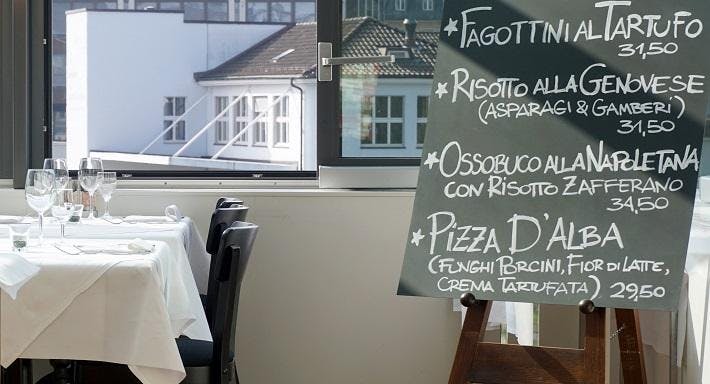 FAGOTTINI AL TARTUFO
31,50
RISOTTO ALLA GENOVESE
(ASPARAGI & GAMBERI)
31,50
OSSOBUCO ALLA NAPOLETANA
CON RISOTTO ZAFFERANO
34,50
PIZZA D'ALBA
(FUNGHI PORCINI, FIOR DI LATTE,
CREMA TARTUFATA) 29,50